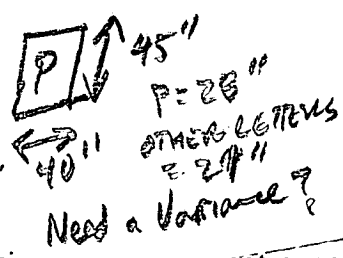 P
45"
40"
P=28"
OTHER LETTERS
= 21"
Need a Variance?